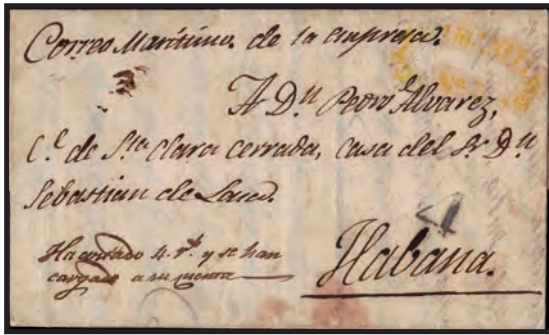 Correo Maritimo. de la empresa.
A Dn Pedro Alvarez,
C.e de Sta Clara cerrada, casa del Sr Dn
Sebastian de Lasa.
4
Ha costado 4 rs y se han
cargado a su cuenta
Habana.